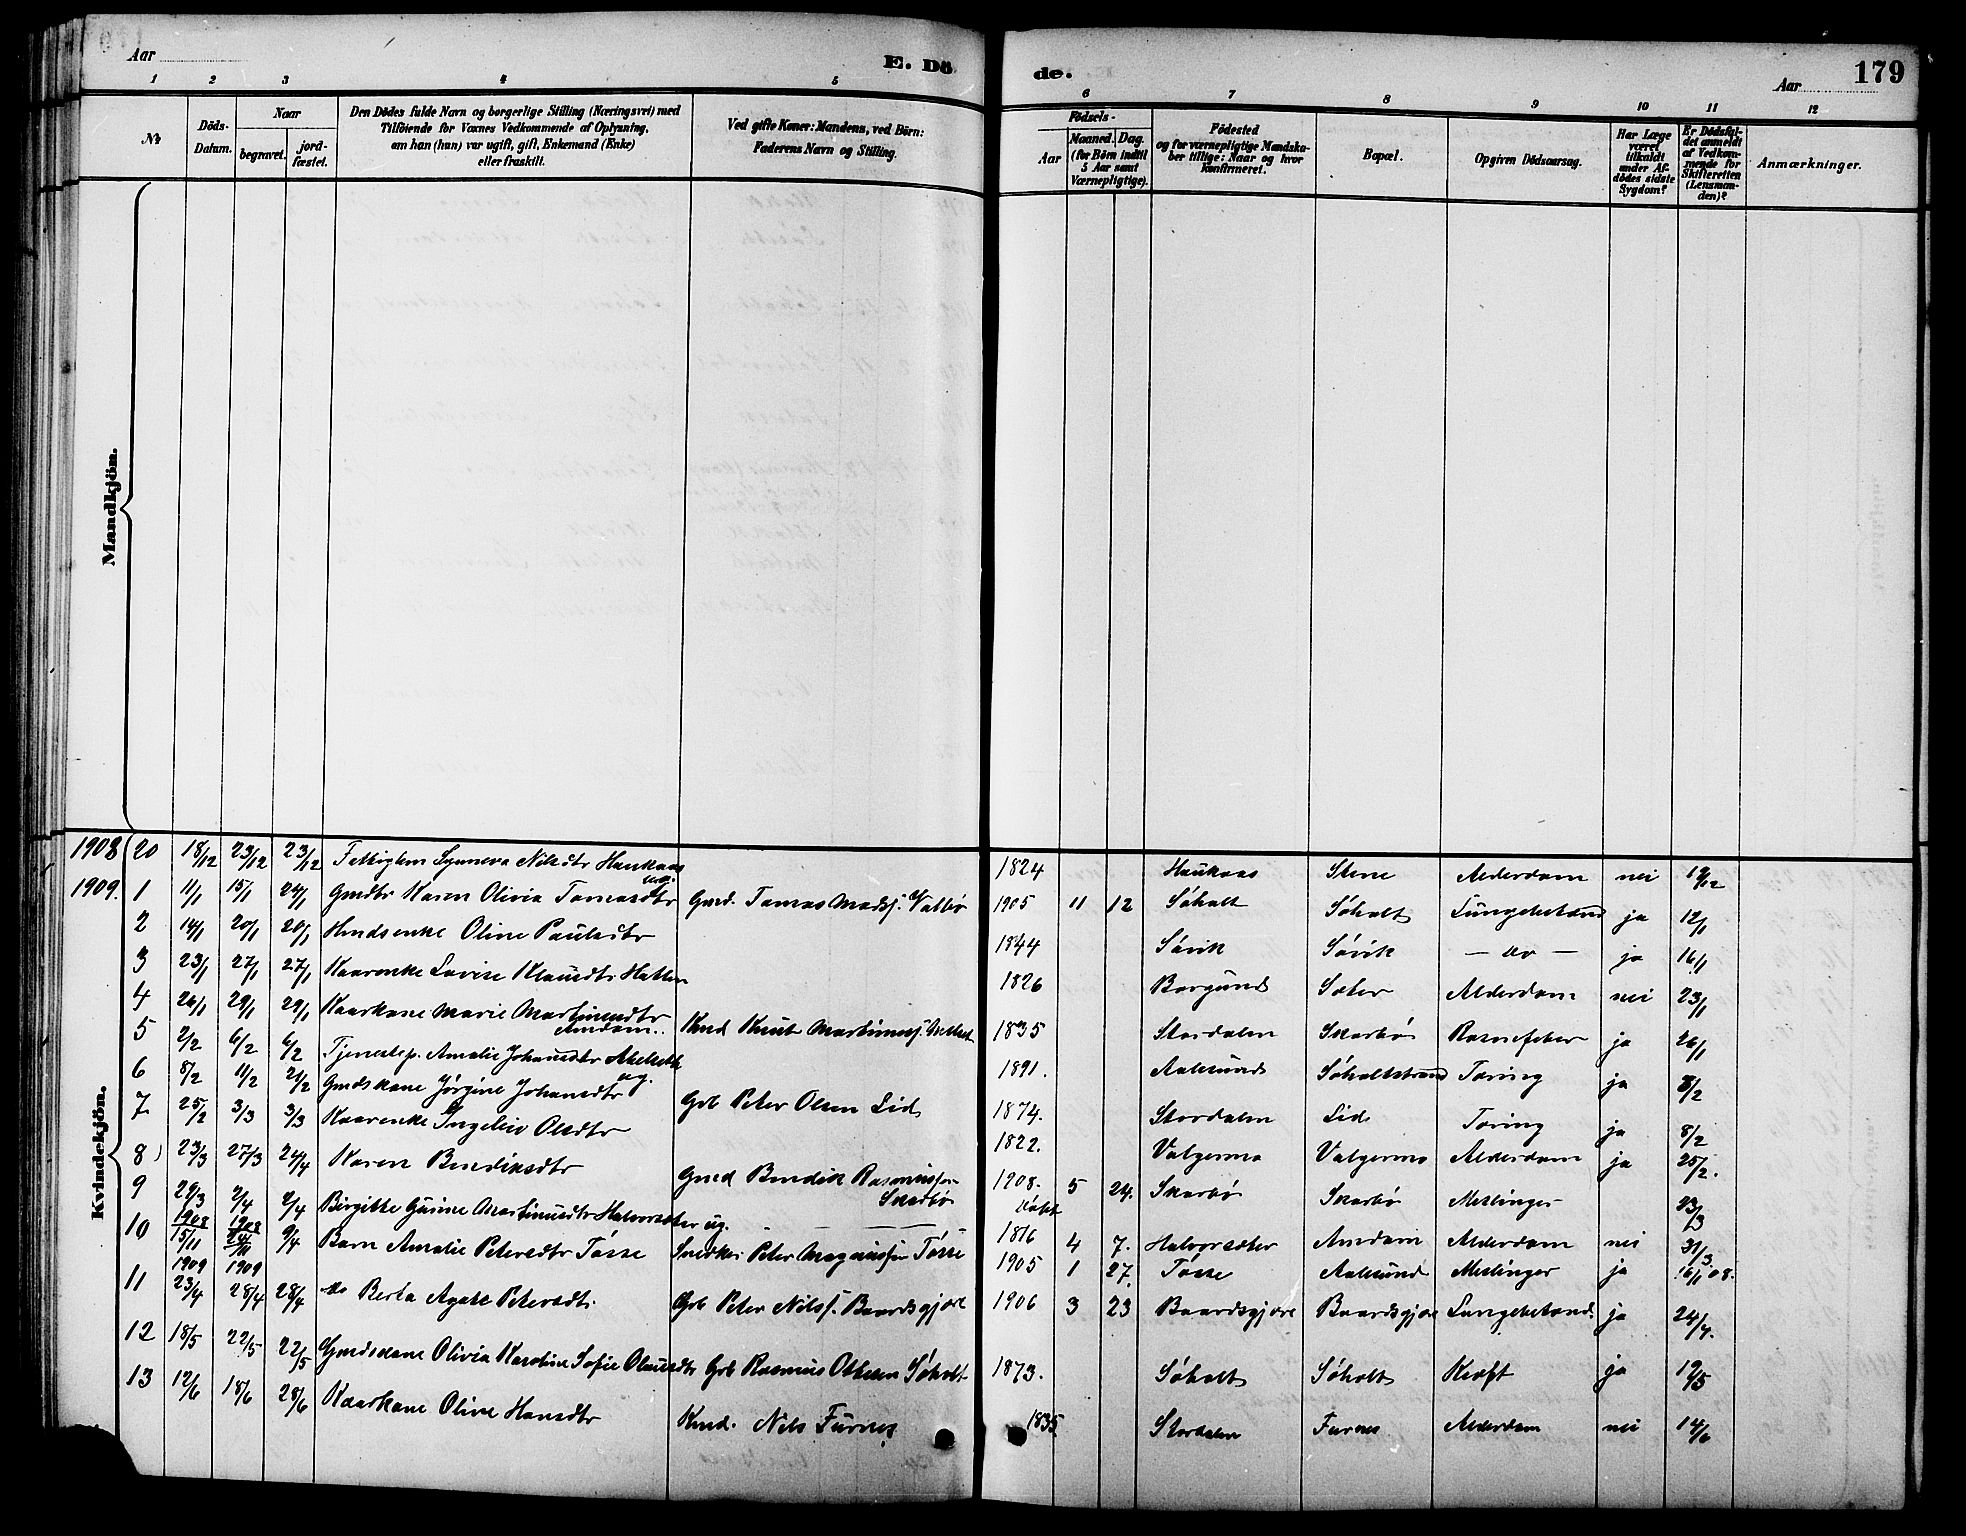 Aar
E. Dö
de.
Aar
179
1 2 3 4 5 6 7 8 9 10 11 12
No
Döds-Datum.
Naar
begravet.
jord-fæstet.
Den Dödes fulde Navn og borgerlige Stilling (Næringsvei) med
Tilföiende for Voxnes Vedkommende af Oplysning,
om han (hun) var ugift, gift, Enkemand (Enke)
eller fraskilt.
Ved gifte Koner: Mandens, ved Börn:
Faderens Navn og Stilling.
Födsels-
Aar
Maaned. Dag.
(for Börn indtil
5 Aar samt
Værnepligtige).
Födested
og for værnepligtige Mandska-
ber tillige: Naar og hvor
konfirmeret.
Bopæl.
Opgiven Dödsaarsag.
Har Læge
været
tilkaldt
under Af-
dödes sidste
Sygdom?
Er Dödsfal-
det anmeldt
af Vedkom-
mende for
Skifteretten
(Lensman-
den)?
Anmærkninger.
Mandkjön.
Kvindekjön.
1908 20 18/12 23/12 23/12 Synneva Nilsdtr Haukaas ug. 1824 Haukaas Stene Alderdom nei 19/12
1909. 1 11/1 15/1 24/1 Gmdtr Karen Olivia Tomasdtr Gmd. Tomas Madss. Vatbø 1905 11 12 Søholt Søholt Lungebetænd ja 12/1
2 14/1 20/1 20/1 Hmdsenke Oline Paulsdtr 1844 Søvik Søvik — do — ja 16/1
3 23/1 27/1 27/1 Kaarenke Lovise Klausdtr Hatlen 1826 Borgund Sæter Alderdom nei 23/1
4 26/1 29/1 29/1 Kaarkone Marie Martinusdtr Amdam.. Kmd Knut Martinuss. 1835 Stordalen Skarbø ja 26/1
5 2/2 6/2 6/2 Tjenestep. Amalie Johansdtr ug. 1891. Aalesund Søholtstrand Tæring ja 8/2
6 8/2 11/2 21/2 Gmdskone Jørgine Johansdtr Grb Peter Olsen Lid 1874. Stordalen Lid Tæring ja 8/2
7 25/2 3/3 3/3 Kaarenke Ingeleiv Olsdtr 1822. Valgermo Valgermo Alderdom ja 25/2.
8) 23/3 27/3 24/4 Karen Bendiksdtr Gmd Bendik Rasmussen Skarbø 1908. 5 24. Skarbø Skarbø Meslinger 23/3
9 29/3 2/4 2/4 Birgitte Gurine Martinusdtr Halvorsæter ug. 1816 4 7. Halvorsæter Amdam Alderdom nei 31/3
10 1908 15/11 1908 9/4 Barn Amalie Petersdtr Tøsse Snedker Peter Magnussen Tøsse 1905 1 27. Tøsse Aalesund Meslinger ja 16/1 08.
11 1909 23/4 1909 28/4 28/4 do Berta Agate Petersdtr. Grb Peter Nilss. Baardsgjære 1906 3 23 Baardsgjære Baardsgjære Lungebetænd. ja 24/4.
12 18/5 22/5 22/5 Gmdskone Olivia Karoline Sofie Olausdtr Grb Rasmus Ottesen Søholt 1873. Søholt Søholt Kræft ja 19/5
13 12/6 18/6 28/6 Kaarkone Oline Hansdtr Kmd. Nils Furnes 1835 Stordalen Furnes Alderdom nei 14/6